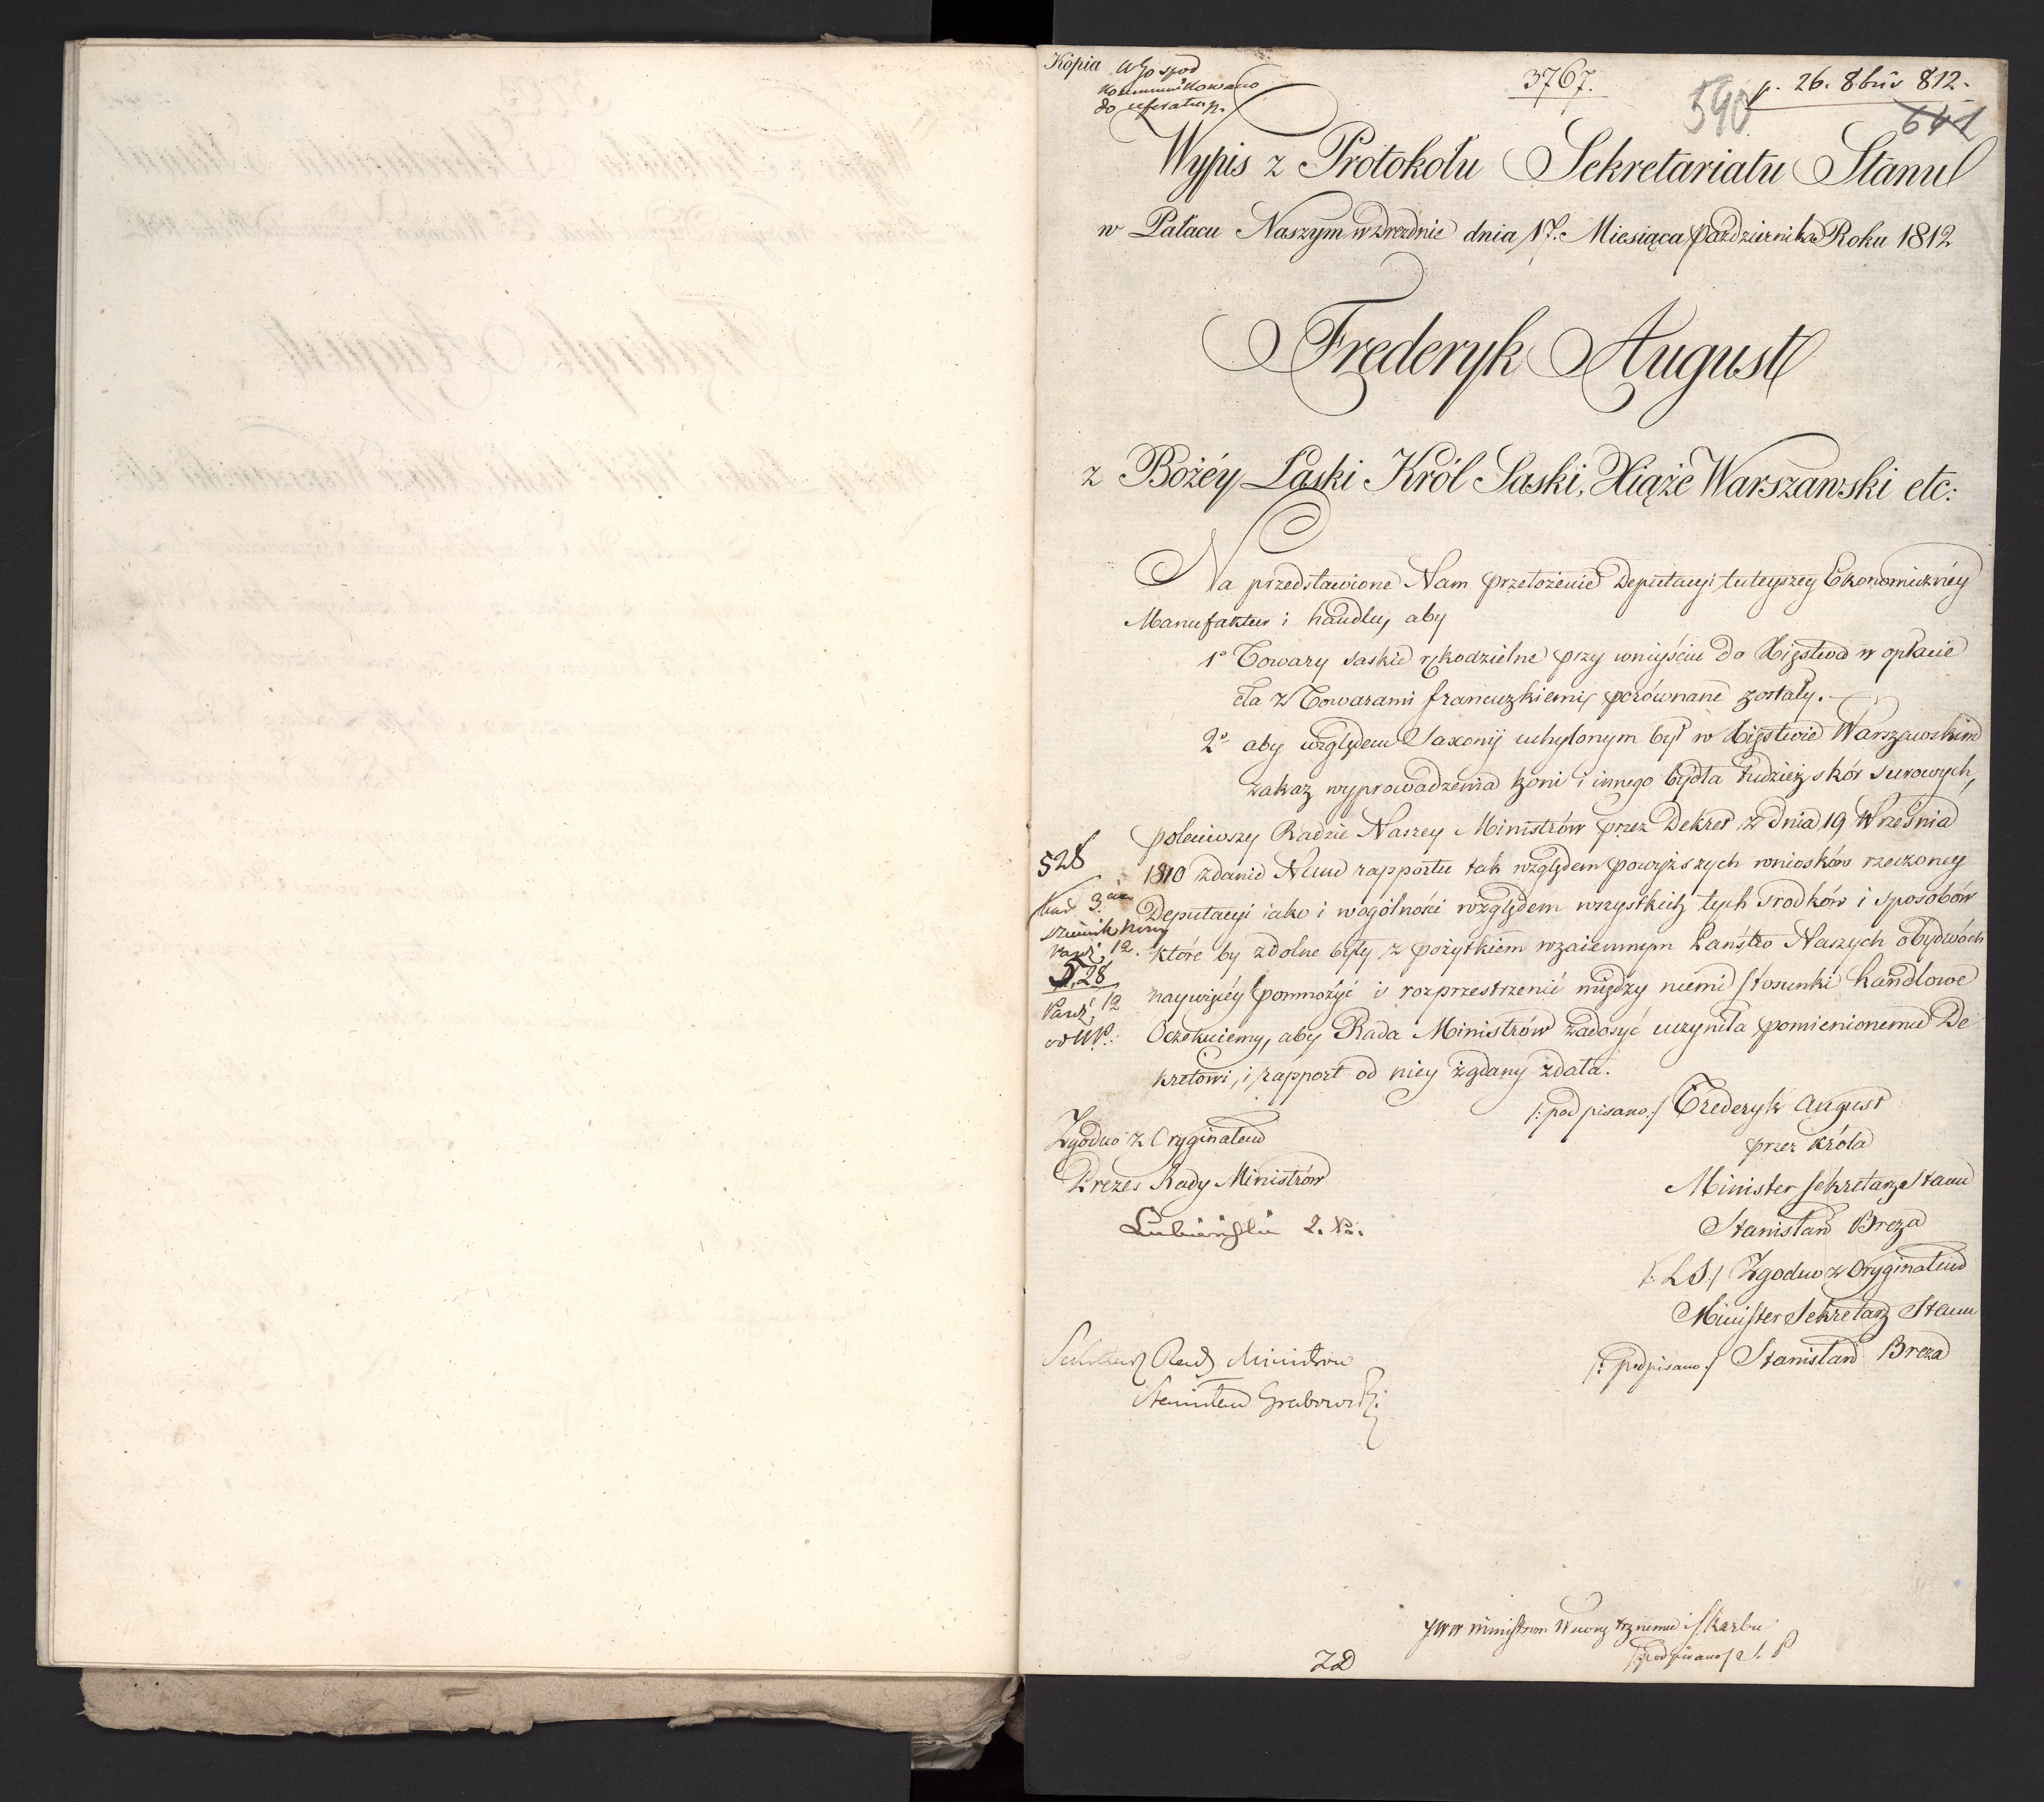 Kopia
3767.
p. 26. 8bris 812.
590
641
Wypis z Protokołu Sekretariatu Stanu
w Pałacu Naszym w Dreznie dnia 17. Miesiąca Października Roku 1812
Frederyk August
z Bożéy Łaski Król Saski, Xiąże Warszawski etc:
Na przedstawione Nam przełożenie Deputacyi tuteyszey Ekonomicznéy
Manufaktur i handlu, aby
1° Towary saskie rękodzielne przy wniyściu do Xięstwa w opłacie
cła z Towarami francuzkiemi porównane zostały.
2° aby względem Saxonij uchylonym był w Xięstwie Warszawskim
zakaz wyprowadzenia koni i innego bydła tudzież skór surowych,
poleciwszy Radzie Naszey Ministrów przez Dekret z dnia 19 Września
1810 zdanie Nam rapportu tak względem powyższych wniosków rzeczoney
Deputacyi iako i wogólności względem wszystkich tych srodków i sposobów
które by zdolne były z pożytkiem wzaiemnym Państw Naszych obydwóch
naywięcéy pomnożyć i rozprzestrzenić między niemi stosunki handlowe
Oczekuiemy, aby Rada Ministrów zadosyć uczyniła pomienionemu De
kretowi, i rapport od niey żądany zdała.
528
528
Paźd: 12
/: podpisano :/ Frederyk August
przez Króla
Minister Sekretarz Stanu
Stanisław Breza
/: LS :/ Zgodno z Oryginałem
Minister Sekretarz Stanu
/: podpisano :/ Stanisław Breza
Zgodno z Oryginałem
Prezes Rady Ministrów
Sekretarz Rady Ministrów
Stanisław Grabowski
JWW Ministrom Wewnętrznemu i Skarbu
/podpisano/ S. P
ZD